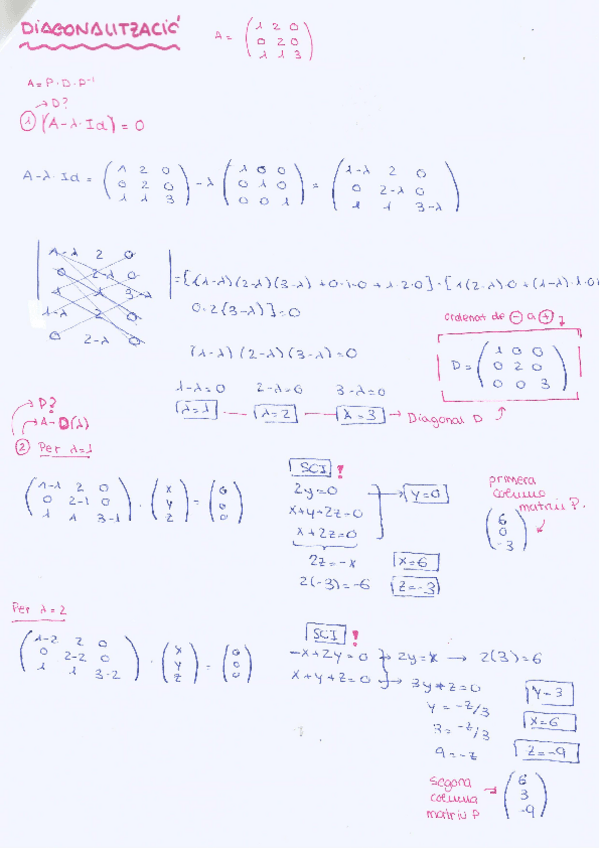 DIAGONALITZACIÓ
A = (1 2 0
0 2 0
1 1 3)
A = P · D · P⁻¹
→ D?
① (A-λ·Id) = 0
A-λ·Id = (1 2 0 - λ (1 0 0 = (1-λ 2 0
0 2 0 0 1 0 0 2-λ 0
1 1 3) 0 0 1) 1 1 3-λ)
1-λ 2 0
0 2-λ 0
1 1 3-λ
1-λ 2 0
0 2-λ 0
= [(1-λ)(2-λ)(3-λ) + 0·1·0 + 1·2·0] - [1(2-λ)0 + (1-λ)·1·0
0·2(3-λ)] = 0
(1-λ)(2-λ)(3-λ) = 0
1-λ=0 2-λ=0 3-λ=0
λ=1 --- λ=2 --- λ=3 → Diagonal D
ordenat de - a +
D = (1 0 0
0 2 0
0 0 3)
→ P?
→ A-D(λ)
② Per λ=1
(1-1 2 0 · (x = (0
0 2-1 0 y 0
1 1 3-1) z) 0)
SCI !
2y=0 → y=0
x+y+2z=0
x+2z=0
2z=-x x=6
2(-3)=-6 z=-3
primera
columna
matriu P.
(6
0
-3)
Per λ=2
(1-2 2 0 · (x = (0
0 2-2 0 y 0
1 1 3-2) z) 0)
SCI !
-x+2y=0 → 2y=x → 2(3)=6
x+y+z=0 → 3y+z=0
y = -z/3
3 = -z/3
9 = -z
y=3
x=6
z=-9
segona
columna
matriu P
→ (6
3
-9)